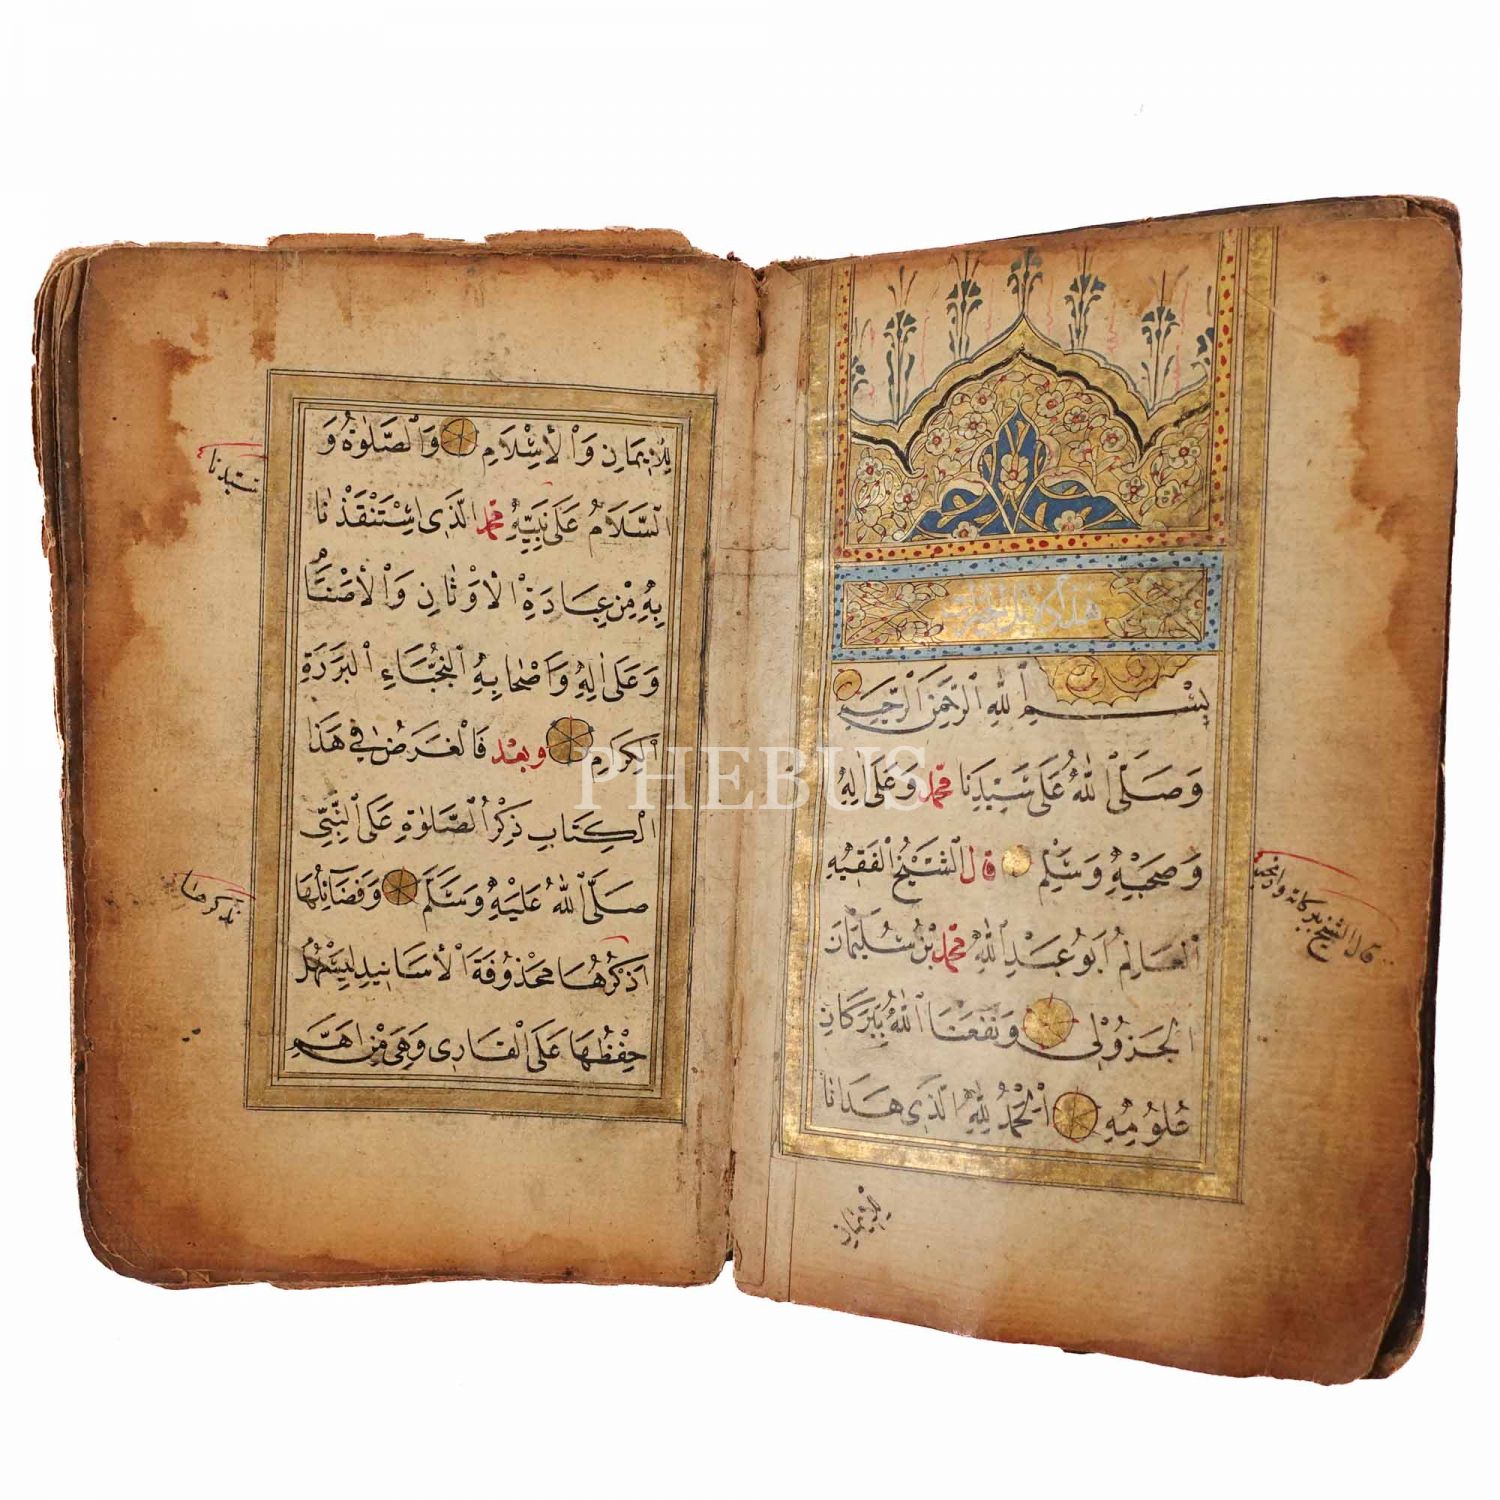 هذا دلائل الخيرات
بِسْمِ اللّٰهِ الرَّحْمٰنِ الرَّحِيمِ
وَصَلَّى اللّٰهُ عَلَى سَيِّدِنَا مُحَمَّدٍ وَعَلَى اٰلِهِ
وَصَحْبِهِ وَسَلِّمْ قال الشَّيْخُ الْفَقِيهُ
الْعَالِمُ اَبُو عَبْدِ اللّٰهِ مُحَمَّد بْنُ سُلَيْمَانَ
الْجَزُوْلِي وَنَفَعَنَا اللّٰهُ بِبَرَكَاتِ
عُلُومِهِ اَلْحَمْدُ لِلّٰهِ الَّذِي هَدَانَا
للايمان
قال الشيخ بركاته
لِلْاِيمَانِ وَالْاِسْلَامِ وَالصَّلٰوةُ وَ
السَّلَامُ عَلَى نَبِيِّهِ مُحَمَّد الَّذِي اسْتَنْقَذَنَا
بِهِ مِنْ عِبَادَةِ الْاَوْثَانِ وَالْاَصْنَامِ
وَعَلَى اٰلِهِ وَاَصْحَابِهِ النُّجَبَاءِ الْبَرَرَةِ
الْكِرَامِ وبعد فَالْغَرَضُ فِي هَذَا
الْكِتَابِ ذِكْرُ الصَّلٰوةِ عَلَى النَّبِيِّ
صَلَّى اللّٰهُ عَلَيْهِ وَسَلَّمَ وَفَضَائِلُهَا
نَذْكُرُهَا مَحْذُوفَةَ الْاَسَانِيدِ لِيَسْهُلَ
حِفْظُهَا عَلَى الْقَارِي وَهِيَ مِنْ اَهَمِّ
نذكرها
PHEBUS